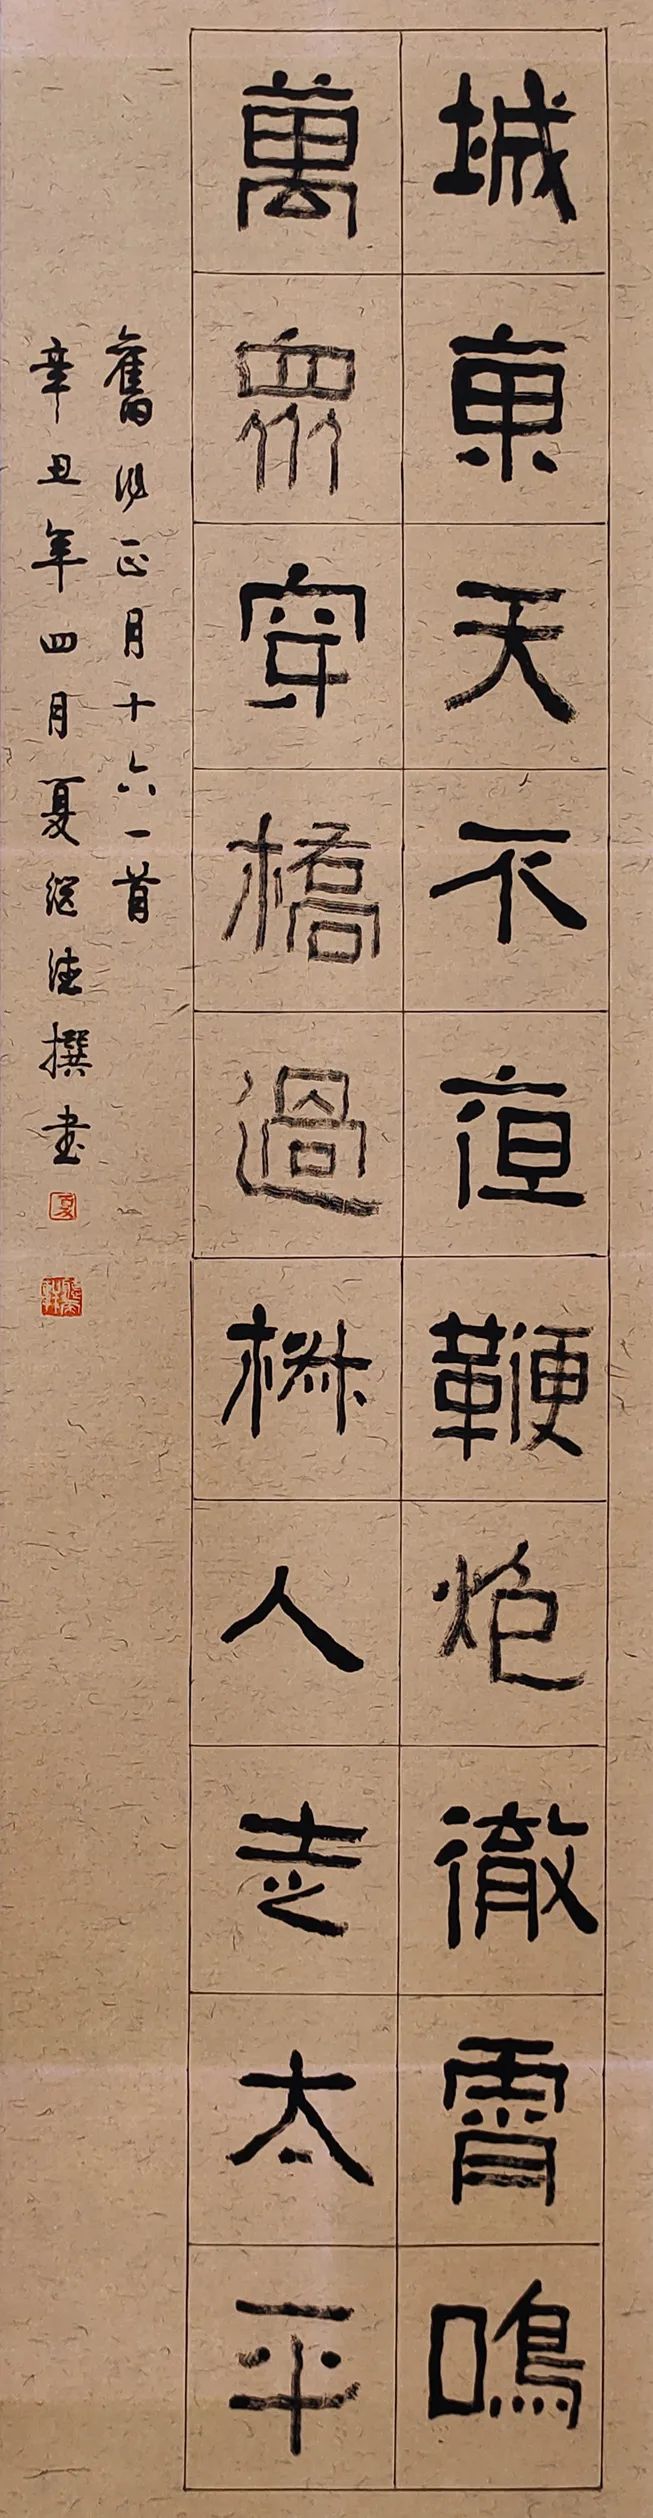 城東天不亱鞭炮徹霄鳴
萬眾穿橋過椒人走太平
舊作正月十六一首
辛丑年四月夏継撰書
夏